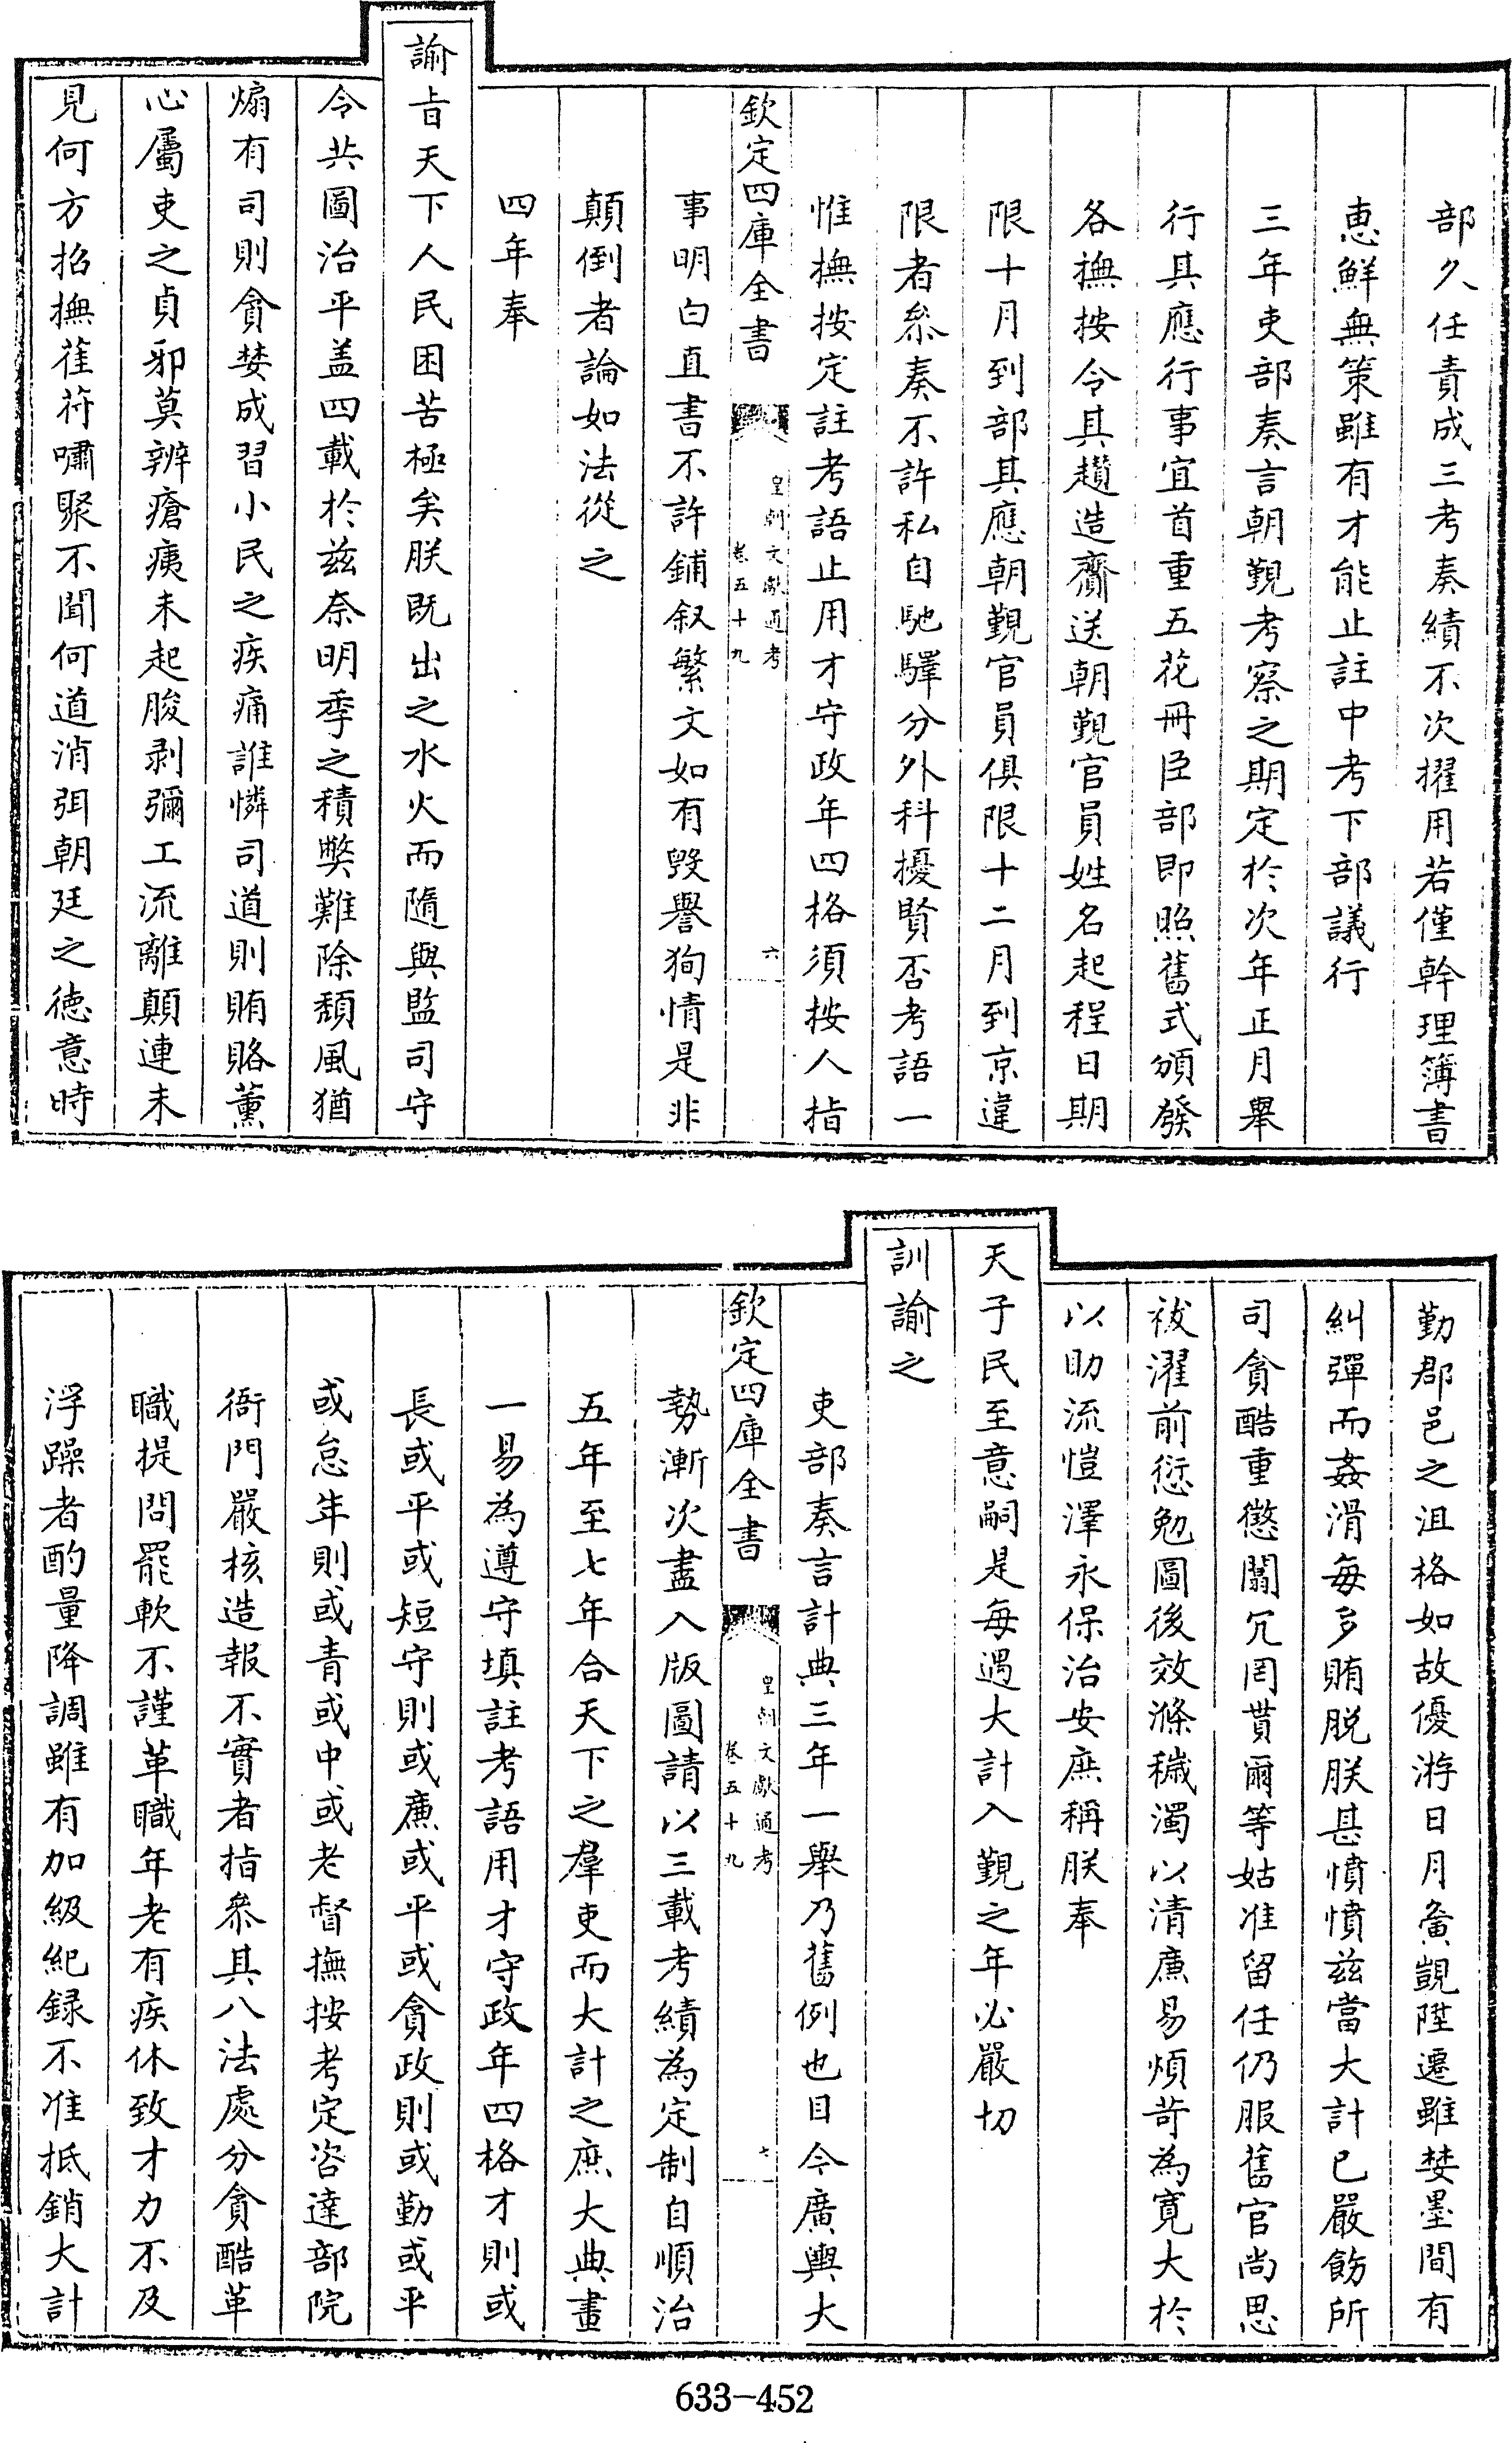 部久任責成三考奏績不次擢用若僅幹理簿書
惠鮮無策雖有才能止註中考下部議行
三年吏部奏言朝覲考察之期定於次年正月舉
行其應行事宜首重五花冊臣部即照舊式頒發
各撫按令其趲造齎送朝覲官員姓名起程日期
限十月到部其應朝覲官員俱限十二月到京違
限者叅奏不許私自馳驛分外科擾賢否考語一
惟撫按定註考語止用才守政年四格須按人指
欽定四庫全書
皇朝文獻通考
卷五十九
六
事明白直書不許鋪叙繁文如有毀譽狥情是非
顛倒者論如法從之
四年奉
諭旨天下人民困苦極矣朕既出之水火而隨與監司守
令共圖治平盖四載於兹奈明季之積弊難除頹風猶
煽有司則貪婪成習小民之疾痛誰憐司道則賄賂薰
心屬吏之貞邪莫辨瘡痍未起朘剥彌工流離顛連未
見何方招撫萑苻嘯聚不聞何道消弭朝廷之德意時
勤郡邑之沮格如故優游日月奠覬陞遷雖婪墨間有
糾彈而姦滑每多賄脱朕甚憤憤兹當大計已嚴飭所
司貪酷重懲闒冗罔貰爾等姑准留任仍服舊官尚思
祓濯前愆勉圖後效滌穢濁以清廉易煩苛為寛大於
以助流愷澤永保治安庶稱朕奉
天子民至意嗣是每遇大計入覲之年必嚴切
訓諭之
吏部奏言計典三年一舉乃舊例也目今廣輿大
欽定四庫全書
皇朝文獻通考
卷五十九
七
勢漸次盡入版圖請以三載考績為定制自順治
五年至七年合天下之羣吏而大計之庶大典畫
一易為遵守填註考語用才守政年四格才則或
長或平或短守則或廉或平或貪政則或勤或平
或怠年則或青或中或老督撫按考定咨達部院
衙門嚴核造報不實者指叅其八法處分貪酷革
職提問罷軟不謹革職年老有疾休致才力不及
浮躁者酌量降調雖有加級紀録不准抵銷大計
633-452